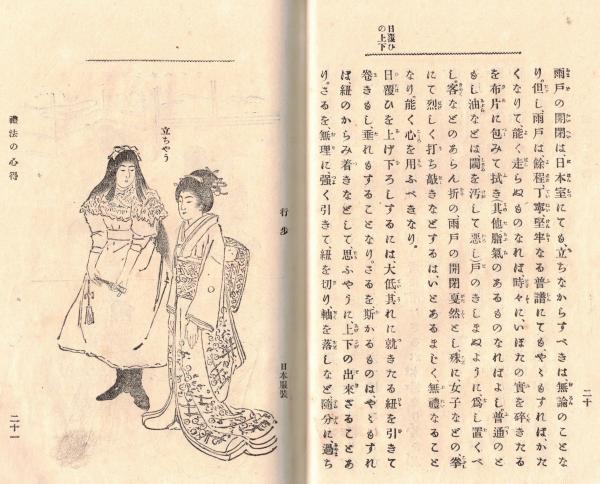 日覆ひ
の上下
雨戸の開閉は、日本室にても、立ちながらすべきは、無論のことな
り。但し、雨戸は餘程、丁寧、堅牢なる普請にても、やゝもすれば、かた
くなりて、能く走らぬものなれば、時々に、いぼたの實を碎きたる
を布片に包みて拭き(其他脂氣のあるものなればよし普通のと
もし油などは閾を汚して惡し)戸のきしまぬように爲し置くべ
し。客などのあらん折の雨戸の開閉戛然とし、殊に女子などの拳
にて烈しく打ち敲きなどするは、いとあるまじく、無禮なること
なり。能く心を用ふべきなり。
日覆ひを上げ下ろしするには、大低、其れに就きたる紐を引きて
卷きもし、垂れもすることなり。さるを、斯かるものはやゝもすれ
ば、紐のからみ着きなどして、思ふやうに上下の出來ざることあ
り。さるを、無理に強く引きて紐を切り、軸を落しなど、隨分に過ち
二十
行步
日本服裝
立ちやう
禮法の心得
二十一